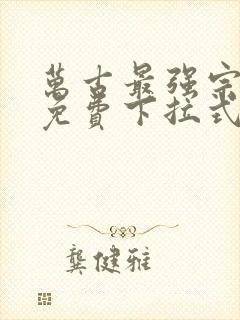 萬古最强宗
免費下拉式
龔健雅